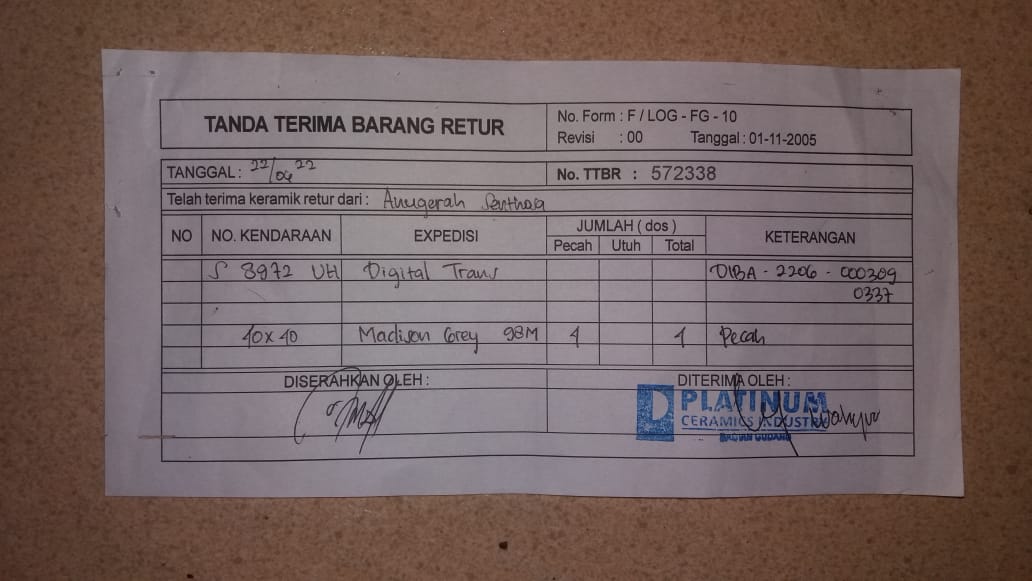 TANDA TERIMA BARANG RETUR
No. Form : F / LOG - FG - 10
Revisi : 00 Tanggal : 01-11-2005
TANGGAL : 22/04 22
No. TTBR : 572338
Telah terima keramik retur dari : Anugerah
NO NO. KENDARAAN EXPEDISI JUMLAH ( dos ) KETERANGAN
Pecah Utuh Total
S 8972 UH Digital Trans DIBA - 2206 - 000309
0337
40x40 Madison Grey 98M 1 1 Pecah
DISERAHKAN OLEH : DITERIMA OLEH :
PLATINUM
CERAMICS INDUSTRY
BAGIAN GUDANG